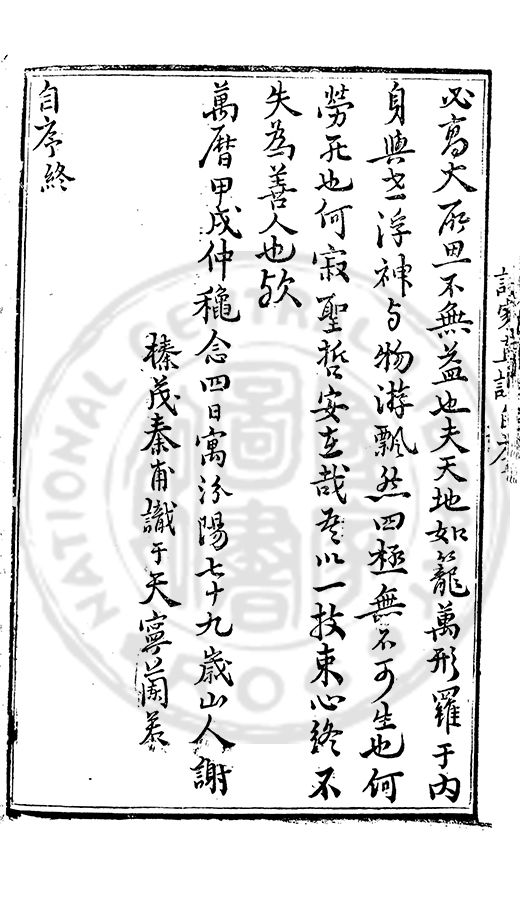 詩家直說自序
必高大所思不無益也夫天地如籠萬形羅于內
身與世浮神与物游飄然四極無不可生也何
勞死也何寂聖哲安在哉吾以一技束心終不
失為善人也欤
萬曆甲戌仲穐念四日寓汾陽七十九歲山人謝
榛茂秦甫識于天寧蘭若
自序終
NATIONAL CENTRAL
圖書